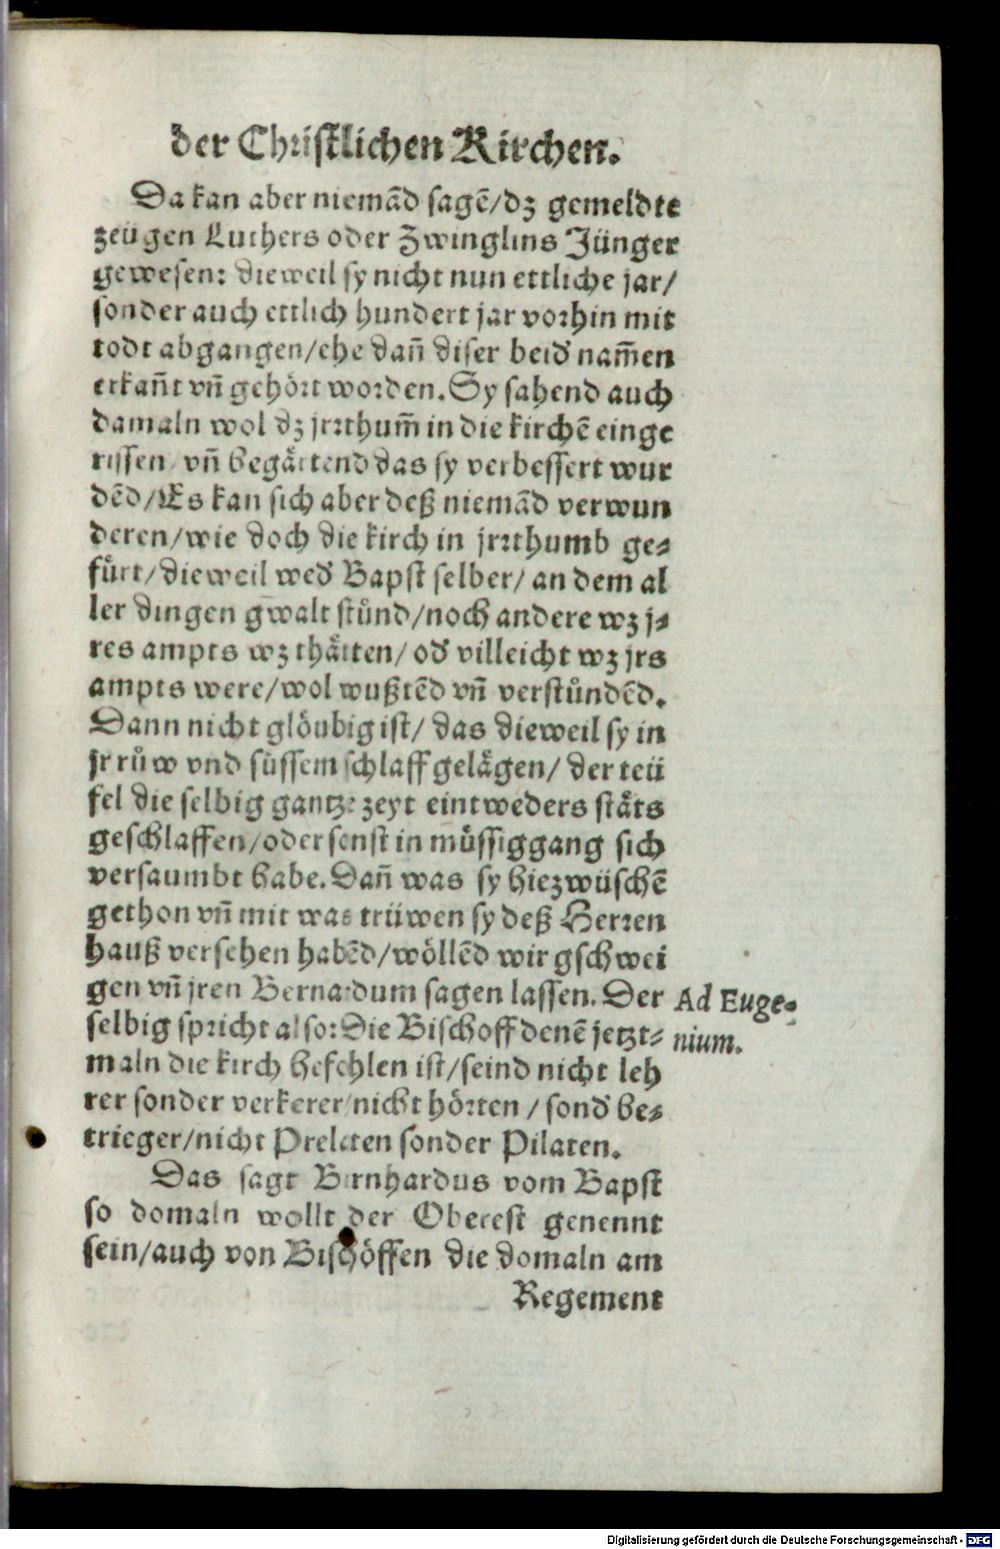 der Christlichen Kirchen.
Da kan aber niemãd sagẽ/dz gemeldte
zeügen Luthers oder Zwinglins Jünger
gewesen: dieweil sy nicht nun ettliche jar/
sonder auch ettlich hundert jar vorhin mit
todt abgangen/ehe dañ diser beid nam̃en
erkañt vñ gehört worden. Sy sahend auch
damaln wol dz jrrthum̃ in die kirchẽ einge
rissen vñ begärtend das sy verbessert wur
dẽd/Es kan sich aber deß niemãd verwun
deren/wie doch die kirch in jrrthumb ge⸗
fürt/dieweil wed Bapst selber/ an dem al
ler dingen gwalt stůnd/noch andere wz j⸗
res ampts wz thätten/ od villeicht wz jrs
ampts were/wol wußtẽd vñ verstůndẽd.
Dann nicht glöubig ist/ das dieweil sy in
jr růw vnd süssem schlaff gelägen/ der teü
fel die selbig gantze zeyt eintweders stäts
geschlaffen/oder sonst in müssiggang sich
versaumbt habe. Dañ was sy hiezwüschẽ
gethon vñ mit was trüwen sy deß Herren
hauß versehen habẽd/wöllẽd wir gschwei
gen vñ jren Bernardum sagen lassen. Der
Ad Euge⸗
nium.
selbig spricht also: Die Bischoff denẽ jetzt⸗
maln die kirch befehlen ist/seind nicht leh
rer sonder verkerer/nicht hörten / sond be⸗
trieger/nicht Prelaten sonder Pilaten.
Das sagt Bernhardus vom Bapst
so domaln wollt der Oberest genennt
sein/auch von Bischöffen die domaln am
Regement
Digitalisierung gefördert durch die Deutsche Forschungsgemeinschaft - DFG